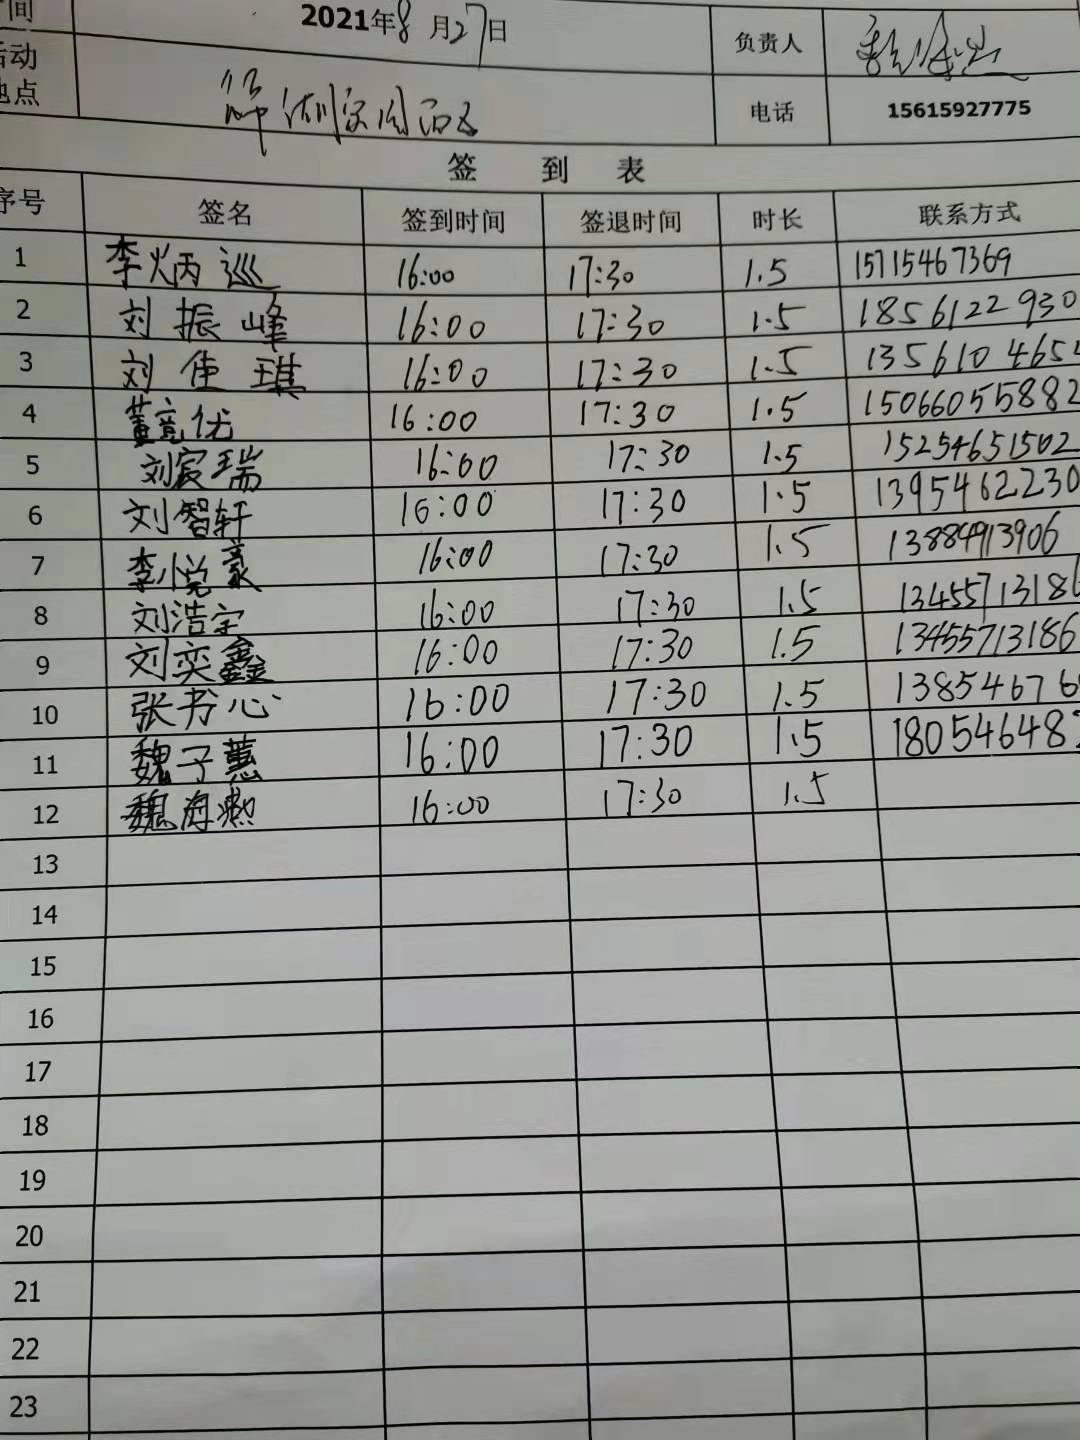 间 2021年8月27日 负责人
活动
地点 电话 15615927775
签 到 表
序号 签名 签到时间 签退时间 时长 联系方式
1 李炳巡 16:00 17:30 1.5 15715467369
2 刘振峰 16:00 17:30 1.5 1856122930
3 刘佳琪 16:00 17:30 1.5 135610465
4 董竟优 16:00 17:30 1.5 15066055882
5 刘宸瑞 16:00 17:30 1.5 15254651502
6 刘智轩 16:00 17:30 1.5 1395462230
7 李悦豪 16:00 17:30 1.5 13884913906
8 刘浩宇 16:00 17:30 1.5 13455713186
9 刘奕鑫 16:00 17:30 1.5 13455713186
10 张书心 16:00 17:30 1.5 13854676
11 魏子蕙 16:00 17:30 1.5 18054648
12 魏海熙 16:00 17:30 1.5
13
14
15
16
17
18
19
20
21
22
23